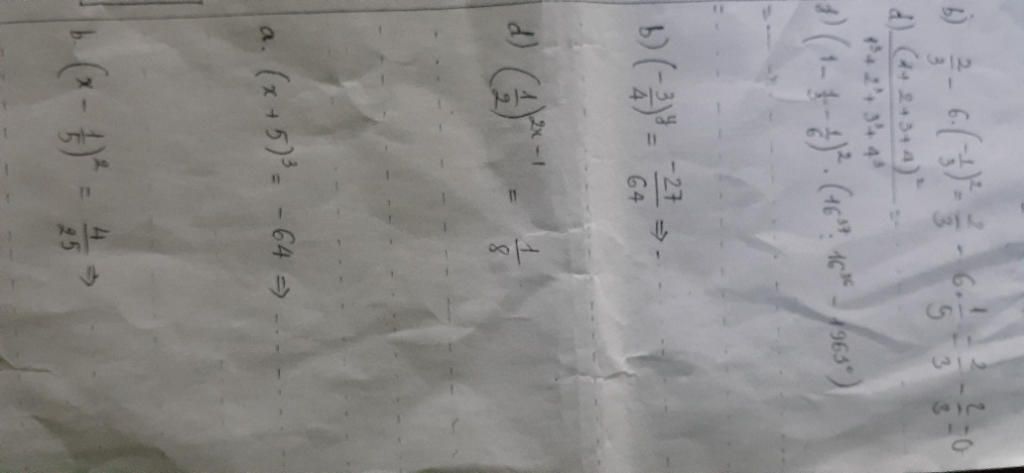 b) 2/3 - 6(-1/3)² = 2/3 - 6·1/5 = 2/3 - 2/3 = 0
d) (1+2+3+4)² / 1³+2³+3³+4³ =
g) (1 - 1/3 - 1/6)² · (16³⁷ : 16³⁶ - 1963⁰)
= - -
=
b) (-3/4)^y = -27/64 ⇒
d) (1/2)^2x-1 = 1/8
a. (x + 5)³ = - 64 ⇒
b (x - 1/5)² = 4/25 ⇒